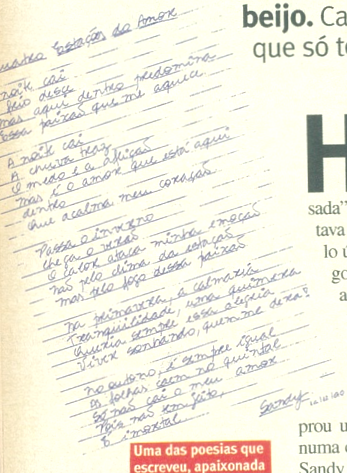 Quatro Estações do Amor
A noite cai
O frio desce
mas aqui dentro predomina
Essa paixão que me aquece
A noite cai
A chuva traz
O medo e a aflição
mas é o amor que está aqui
dentro
Que acalma meu coração
Passa o inverno
chega o verão
O calor ataca minha emoção
não pelo clima da estação
mas pelo fogo dessa paixão
na primavera, a calmaria
Tranquilidade, uma quimera
Queria sempre essa alegria
Viver sonhando, quem me dera?
no outono, é sempre igual
As folhas caem no quintal
Só não cai o meu amor
Pois não
É imortal
Sandy
beijo. Ca
que só te
H
sada"
tava
lo ú
go
a
prou u
numa d
Sandy
Uma das poesias que
escreveu, apaixonada